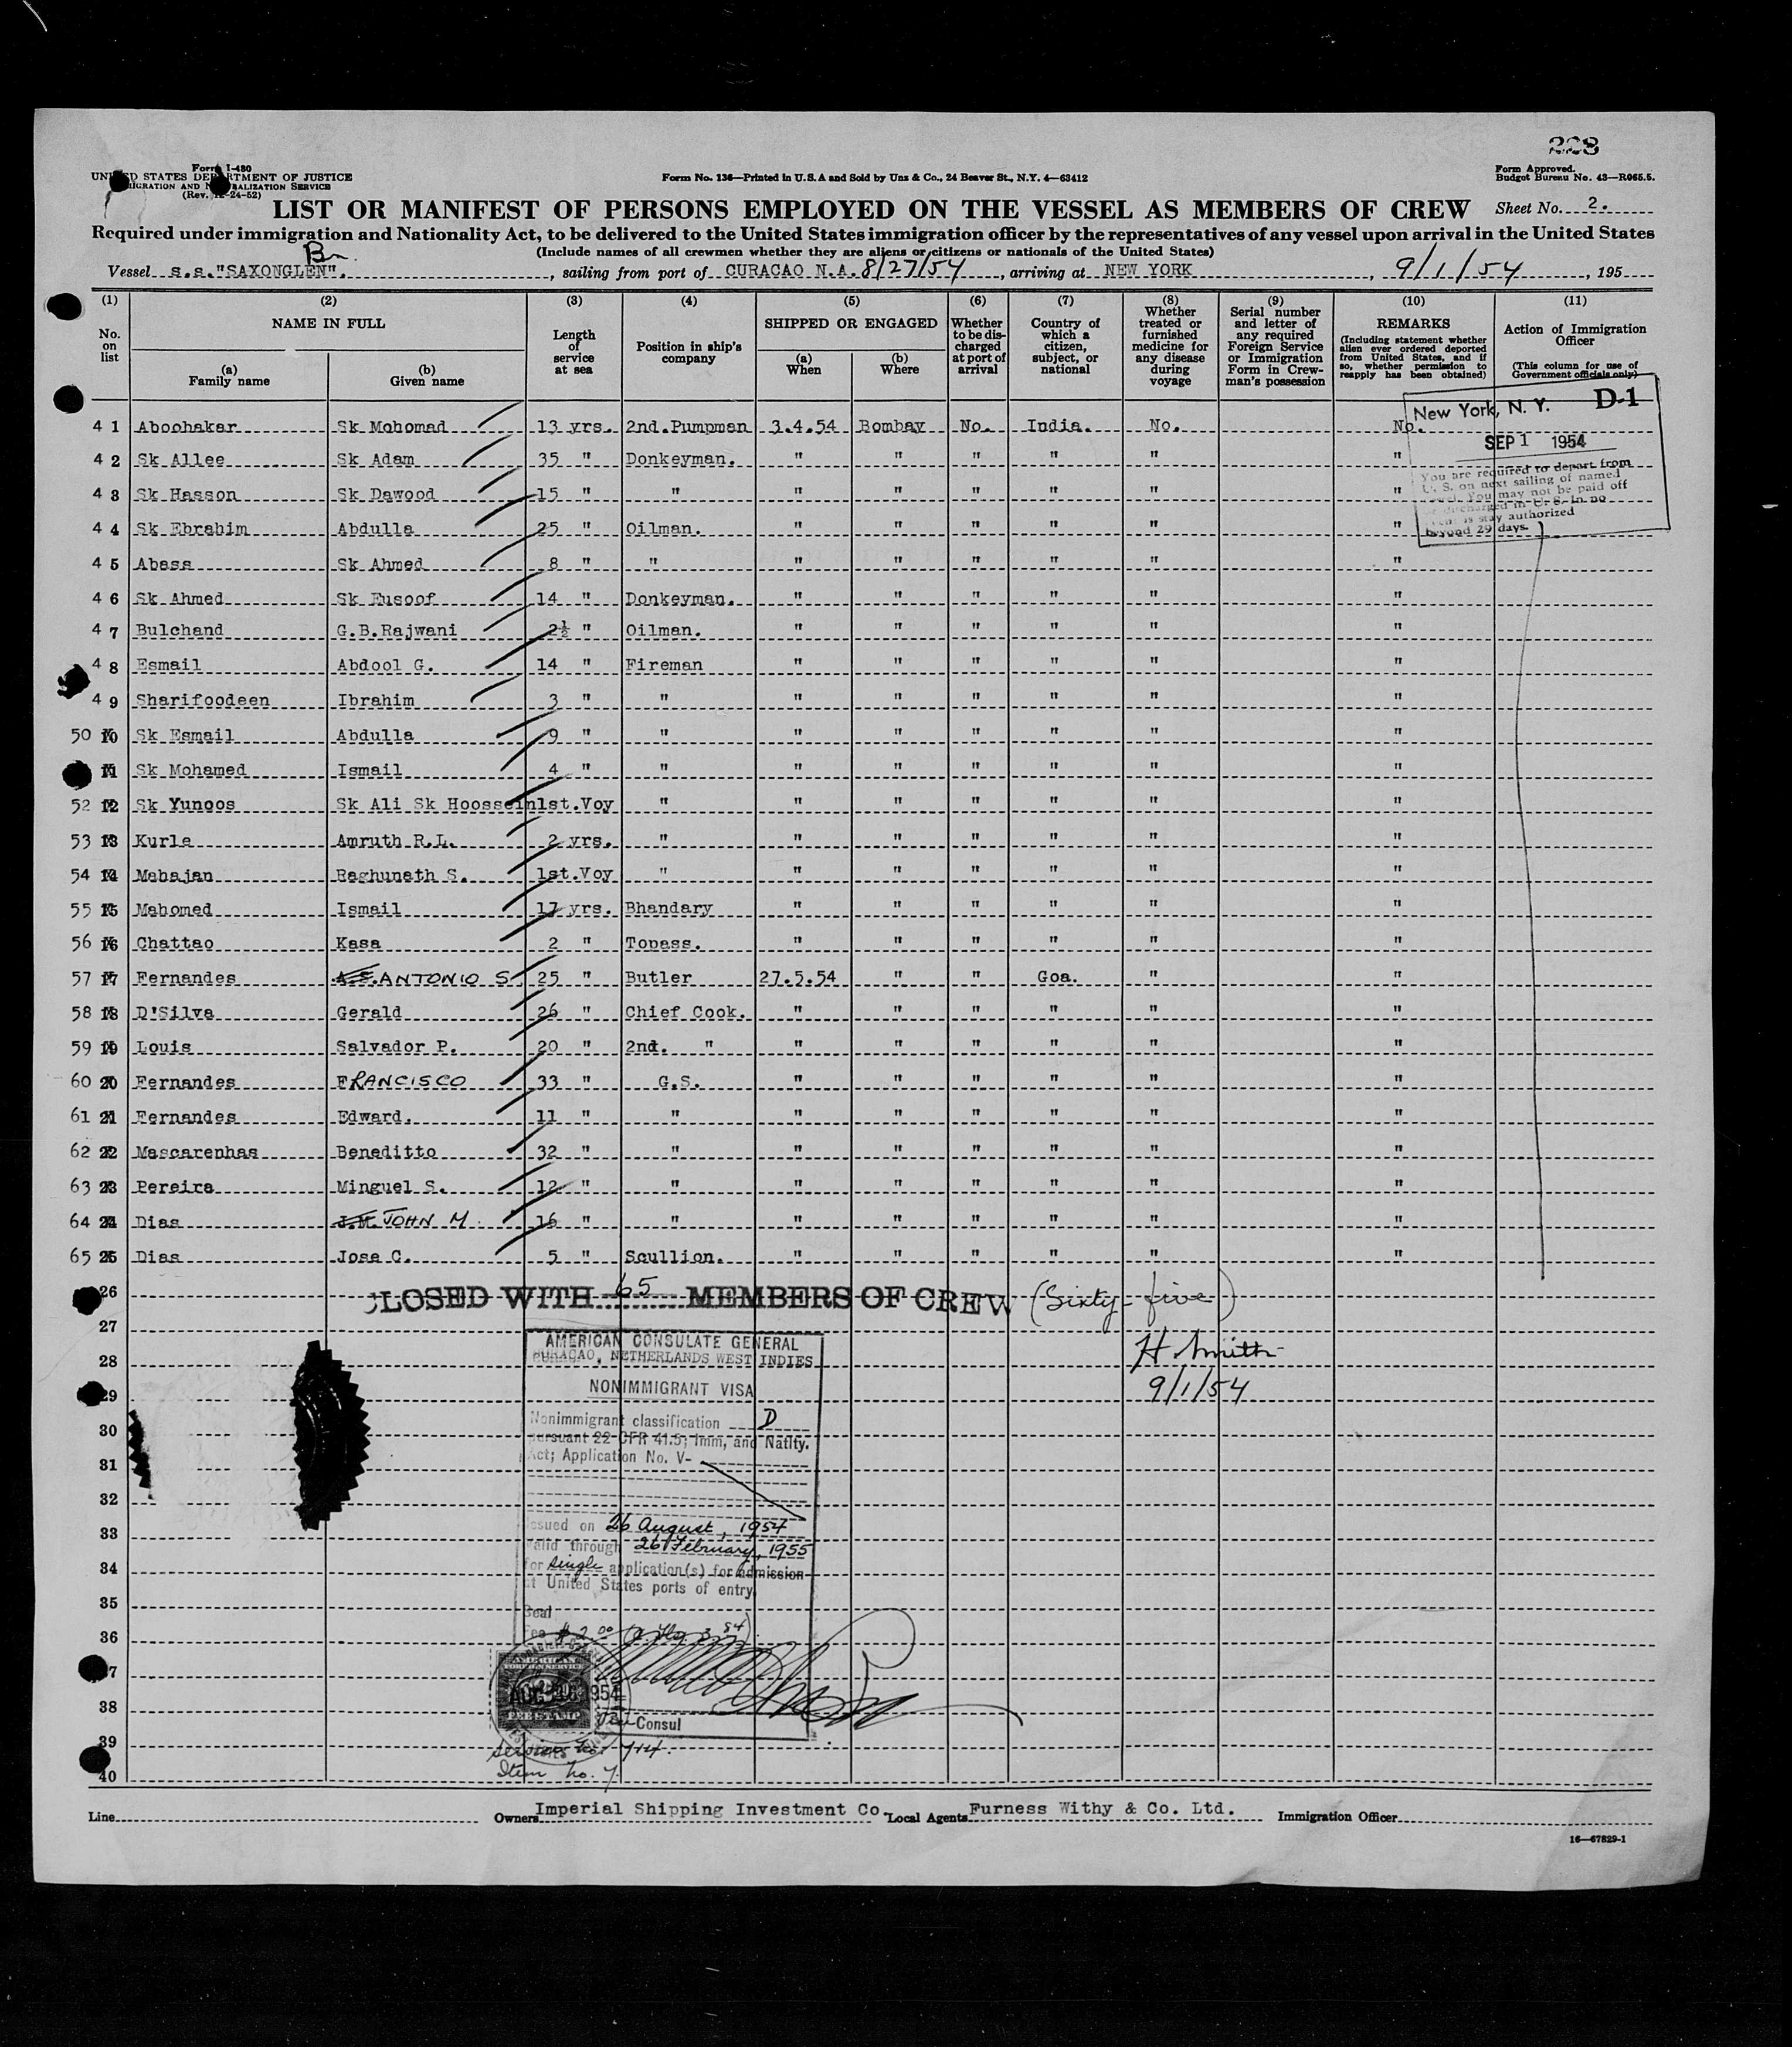 228
Form I-480
UNITED STATES DEPARTMENT OF JUSTICE
IMMIGRATION AND NATURALIZATION SERVICE
(Rev. 12-24-52)
Form No. 136—Printed in U.S.A and Sold by Unz & Co., 24 Beaver St., N.Y. 4—63412
Form Approved.
Budget Bureau No. 43—R065.5.
LIST OR MANIFEST OF PERSONS EMPLOYED ON THE VESSEL AS MEMBERS OF CREW
Sheet No. 2.
Required under immigration and Nationality Act, to be delivered to the United States immigration officer by the representatives of any vessel upon arrival in the United States
(Include names of all crewmen whether they are aliens or citizens or nationals of the United States)
Br
Vessel s.s."SAXONGLEN". , sailing from port of CURACAO N.A. 8/27/54 , arriving at NEW YORK , 9/1/54 , 195
(1) No. on list
(2) NAME IN FULL (a) Family name (b) Given name
(3) Length of service at sea
(4) Position in ship's company
(5) SHIPPED OR ENGAGED (a) When (b) Where
(6) Whether to be discharged at port of arrival
(7) Country of which a citizen, subject, or national
(8) Whether treated or furnished medicine for any disease during voyage
(9) Serial number and letter of any required Foreign Service or Immigration Form in Crewman's possession
(10) REMARKS (Including statement whether alien ever ordered deported from United States, and if so, whether permission to reapply has been obtained)
(11) Action of Immigration Officer (This column for use of Government officials only)
4 1 Aboobakar Sk Mohomad 13 yrs. 2nd.Pumpman 3.4.54 Bombay No. India. No. No.
4 2 Sk Allee Sk Adam 35 " Donkeyman. " " " " " "
4 3 Sk Hasson Sk Dawood 15 " " " " " " " "
4 4 Sk Ebrahim Abdulla 25 " Oilman. " " " " " "
4 5 Abass Sk Ahmed 8 " " " " " " " "
4 6 Sk Ahmed Sk Eusoof 14 " Donkeyman. " " " " " "
4 7 Bulchand G.B.Rajwani 2½ " Oilman. " " " " " "
4 8 Esmail Abdool G. 14 " Fireman " " " " " "
4 9 Sharifoodeen Ibrahim 3 " " " " " " " "
50 10 Sk Esmail Abdulla 9 " " " " " " " "
11 Sk Mohamed Ismail 4 " " " " " " " "
52 12 Sk Yunoos Sk Ali Sk Hoossein 1st.Voy " " " " " " "
53 13 Kurle Amruth R.L. 2 yrs. " " " " " " "
54 14 Mahajan Raghunath S. 1st.Voy " " " " " " "
55 15 Mahomed Ismail 17 yrs. Bhandary " " " " " "
56 16 Chattao Kasa 2 " Topass. " " " " " "
57 17 Fernandes A.S. ANTONIO S 25 " Butler 27.5.54 " " Goa. " "
58 18 D'Silva Gerald 26 " Chief Cook. " " " " " "
59 19 Louis Salvador P. 20 " 2nd. " " " " " " "
60 20 Fernandes FRANCISCO 33 " G.S. " " " " " "
61 21 Fernandes Edward. 11 " " " " " " " "
62 22 Mascarenhas Beneditto 32 " " " " " " " "
63 23 Pereira Minguel S. 12 " " " " " " " "
64 24 Dias J.M. JOHN M. 16 " " " " " " " "
65 25 Dias Jose C. 5 " Scullion. " " " " " "
New York, N. Y. D-1
SEP 1 1954
You are required to depart from
U. S. on next sailing of named
vessel. You may not be paid off
or discharged in U. S. In no
event is stay authorized
beyond 29 days.
26
CLOSED WITH 65 MEMBERS OF CREW (Sixty-five)
27
28
29
30
31
32
33
34
35
36
37
38
39
40
H Smith
9/1/54
AMERICAN CONSULATE GENERAL
CURACAO, NETHERLANDS WEST INDIES
NONIMMIGRANT VISA
Nonimmigrant classification D
pursuant 22 CFR 41.5; Imm, and Natlty.
Act; Application No. V-
Issued on 26 August, 1954
Valid through 26 February, 1955
for single application(s) for admission
at United States ports of entry
Seal
Fee $ 2.00
AMERICAN
FOREIGN SERVICE
AUG 26 1954
FEE STAMP
Consul
Service No.
Item No. 7.
Line Owners Imperial Shipping Investment Co. Local Agents Furness Withy & Co. Ltd. Immigration Officer
16—67829-1